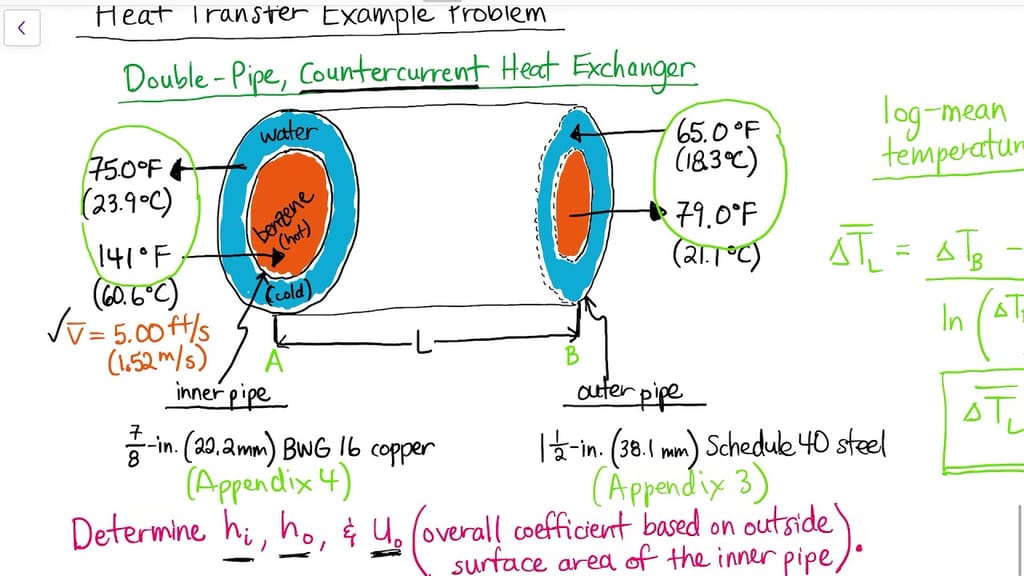 Heat Transfer Example Problem
Double-Pipe, Countercurrent Heat Exchanger
water
benzene
(hot)
(cold)
75.0°F
(23.9°C)
141°F
(60.6°C)
√ V̅ = 5.00 ft/s
(1.52 m/s)
65.0°F
(18.3°C)
79.0°F
(21.1°C)
A
L
B
inner pipe
outer pipe
7/8-in. (22.2mm) BWG 16 copper
(Appendix 4)
1 1/2-in. (38.1 mm) Schedule 40 steel
(Appendix 3)
Determine hi, ho, & Uo (overall coefficient based on outside
surface area of the inner pipe).
log-mean
temperatur
ΔT̅L = ΔTB -
ln (ΔT
ΔT̅L